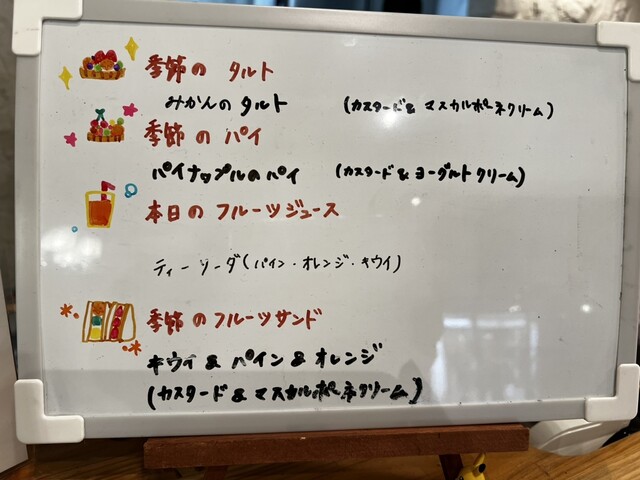 季節の タルト
みかんのタルト (カスタード&マスカルポーネクリーム)
季節のパイ
パイナップルのパイ (カスタード&ヨーグルトクリーム)
本日のフルーツジュース
ティーソーダ(パイン・オレンジ・キウイ)
季節のフルーツサンド
キウイ&パイン&オレンジ
(カスタード&マスカルポーネクリーム)